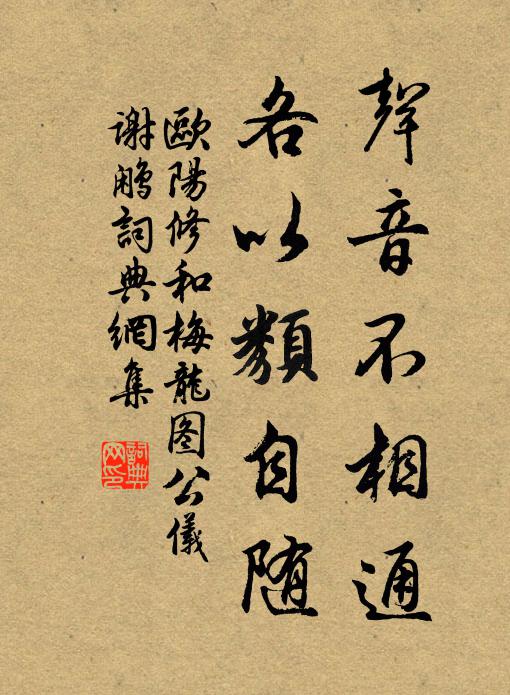 聲音不相通
各以類自随
歐陽修和梅龍图公儀
謝鷳詞典網集
詞典网印